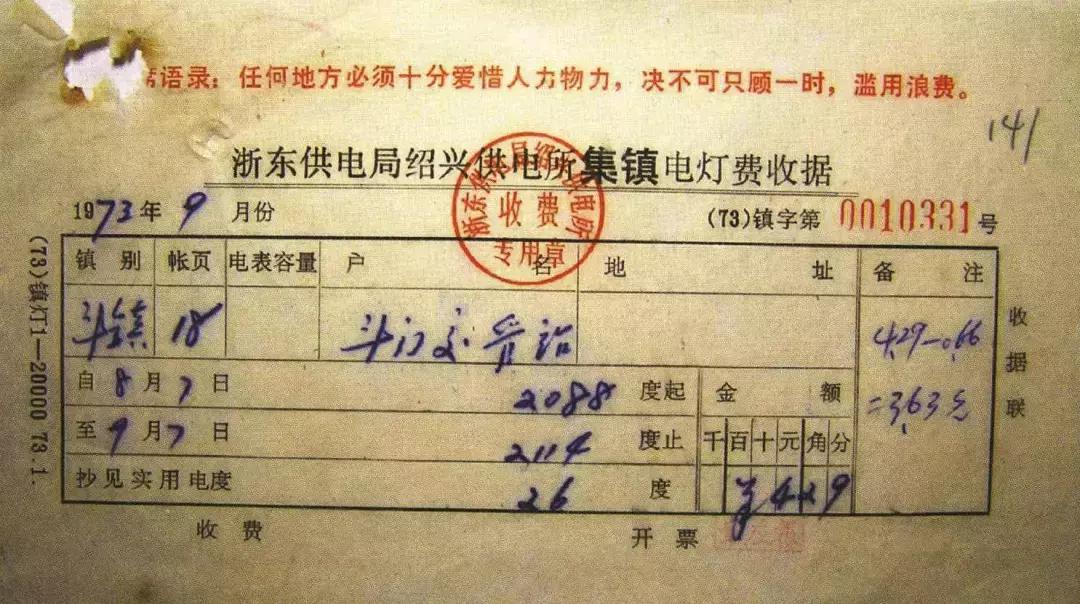 席语录：任何地方必须十分爱惜人力物力，决不可只顾一时，滥用浪费。
141
浙东供电局绍兴供电所集镇电灯费收据
浙东供电局绍兴供电所
收费
专用章
1973年9月份
(73)镇字第0010331号
镇别 帐页 电表容量 户名 地址 备注
斗镇 18 斗门交管站 4.29-0.66
自8月7日 2088度起 金额 =3.63元
至9月7日 2114度止 千百十元角分
抄见实用电度 26度 ¥429
收费 开票
收据联
(73)镇灯1—20000 73.1.